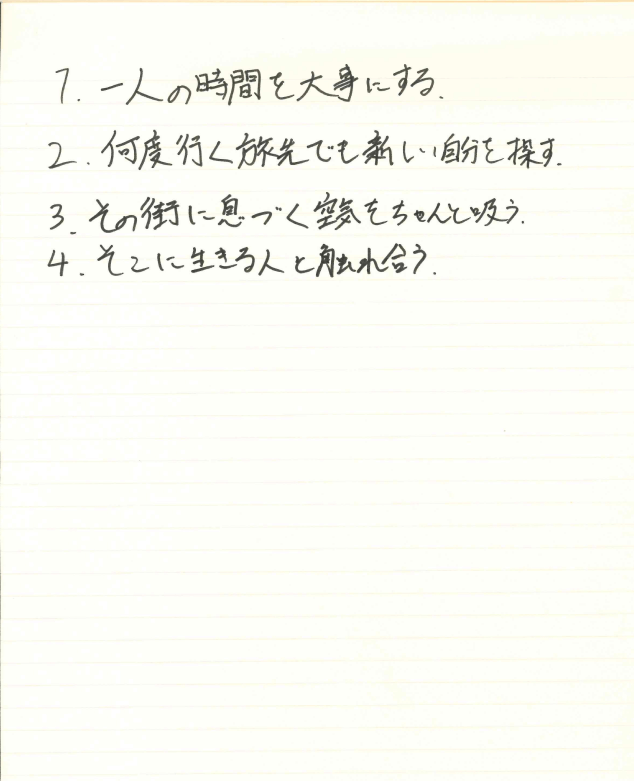 1. 一人の時間を大事にする.
2. 何度行く旅先でも新しい自分を探す.
3. その街に息づく空気をちゃんと吸う.
4. そこに生きる人と触れ合う.